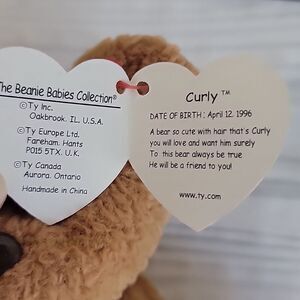 The Beanie Babies Collection®
©Ty Inc.
Oakbrook. IL. U.S.A.
©Ty Europe Ltd.
Fareham. Hants
PO15 5TX. U.K.
©Ty Canada
Aurora. Ontario
Handmade in China
Curly ™
DATE OF BIRTH : April 12. 1996
A bear so cute with hair that's Curly
you will love and want him surely
To this bear always be true
He will be a friend to you!
www.ty.com